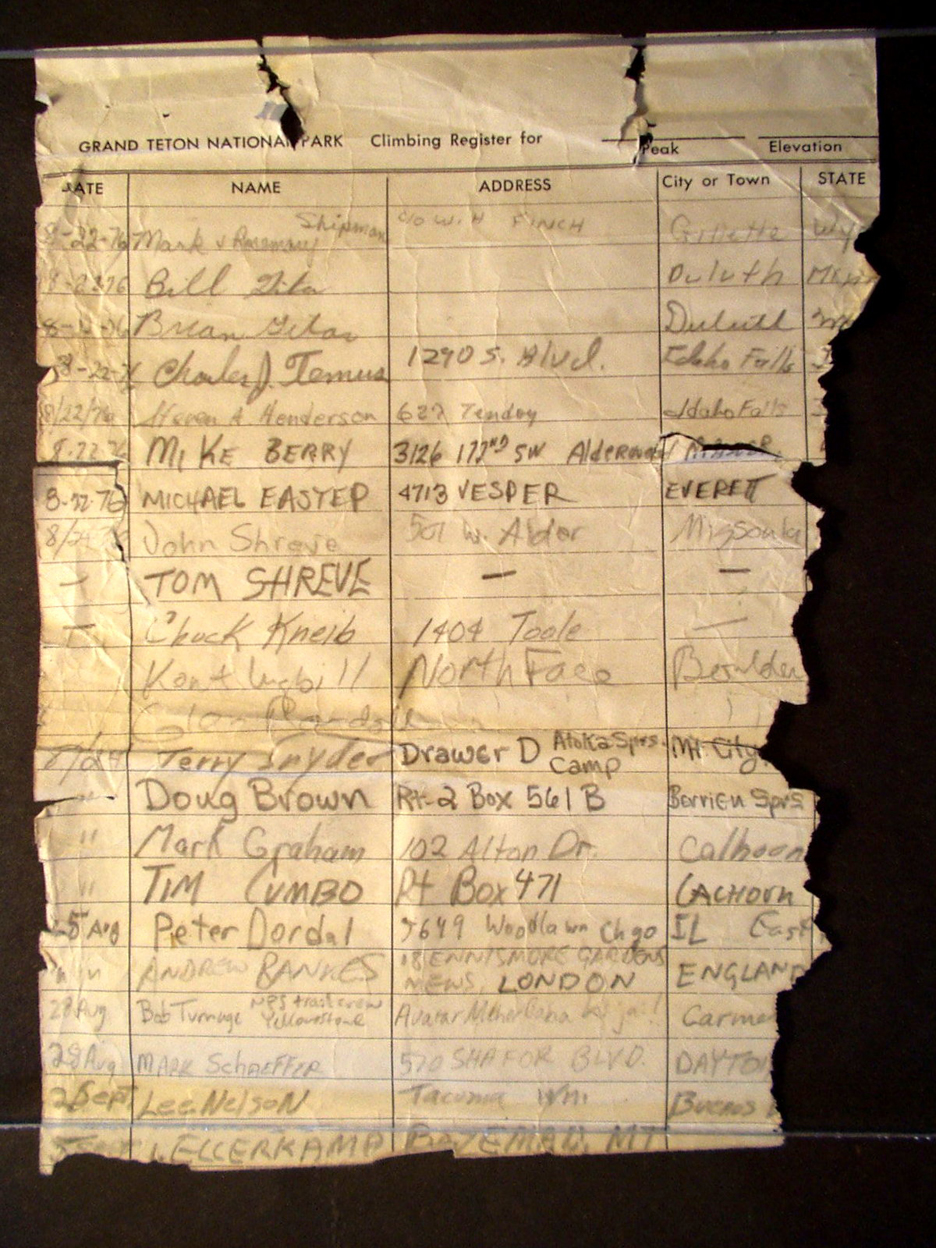 GRAND TETON NATIONAL PARK Climbing Register for Peak Elevation
DATE NAME ADDRESS City or Town STATE
8-22-76 Mark & Rosemary Shipman c/o W.H FINCH Gillette Wy
Bill Duluth
Brian Duluth
8-22-7 Charles J. Temus 1290 S. Blvd. Idaho Falls
8/22/76 Steven A. Henderson 622 Tendoy Idaho Falls
8-22-76 MIKE BERRY 3126 172ND SW Alderwood MANOR
8-22-76 MICHAEL EASTEP 4713 VESPER EVERETT
John Shreve 501 W. Alder Missoula
— TOM SHREVE — —
— Chuck Kneib 1404 Toole —
North Face Boulder
Terry Snyder Drawer D Atoka Sprs. Camp Mt City
" Doug Brown Rt-2 Box 561 B Berrien Sprs
" Mark Graham 102 Alton Dr. Calhoun
" TIM CUMBO Rt Box 471 CALHOUN
25 Aug Peter Dordal 5649 Woodlawn Chgo IL East
" " ANDREW BANKES 18 ENNISMORE GARDENS MEWS, LONDON ENGLAND
28 Aug Bob Turnage NPS trail crew Yellowstone Avatar Meher Baba ki jai! Carme
28 Aug MARK SCHAEFFER 570 SHAFOR BLVD. DAYTON
2 Sept Lee Nelson Tacoma Wn. Buenos
ELLERKAMP BOZEMAN, MT